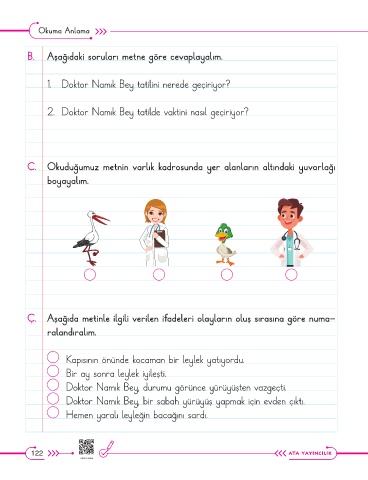 Okuma Anlama
B. Aşağıdaki soruları metne göre cevaplayalım.
1. Doktor Namık Bey tatilini nerede geçiriyor?
2. Doktor Namık Bey tatilde vaktini nasıl geçiriyor?
C. Okuduğumuz metnin varlık kadrosunda yer alanların altındaki yuvarlağı
boyayalım.
Ç. Aşağıda metinle ilgili verilen ifadeleri olayların oluş sırasına göre numa-
ralandıralım.
Kapısının önünde kocaman bir leylek yatıyordu.
Bir ay sonra leylek iyileşti.
Doktor Namık Bey, durumu görünce yürüyüşten vazgeçti.
Doktor Namık Bey, bir sabah yürüyüş yapmak için evden çıktı.
Hemen yaralı leyleğin bacağını sardı.
122
ATA YAYINCILIK